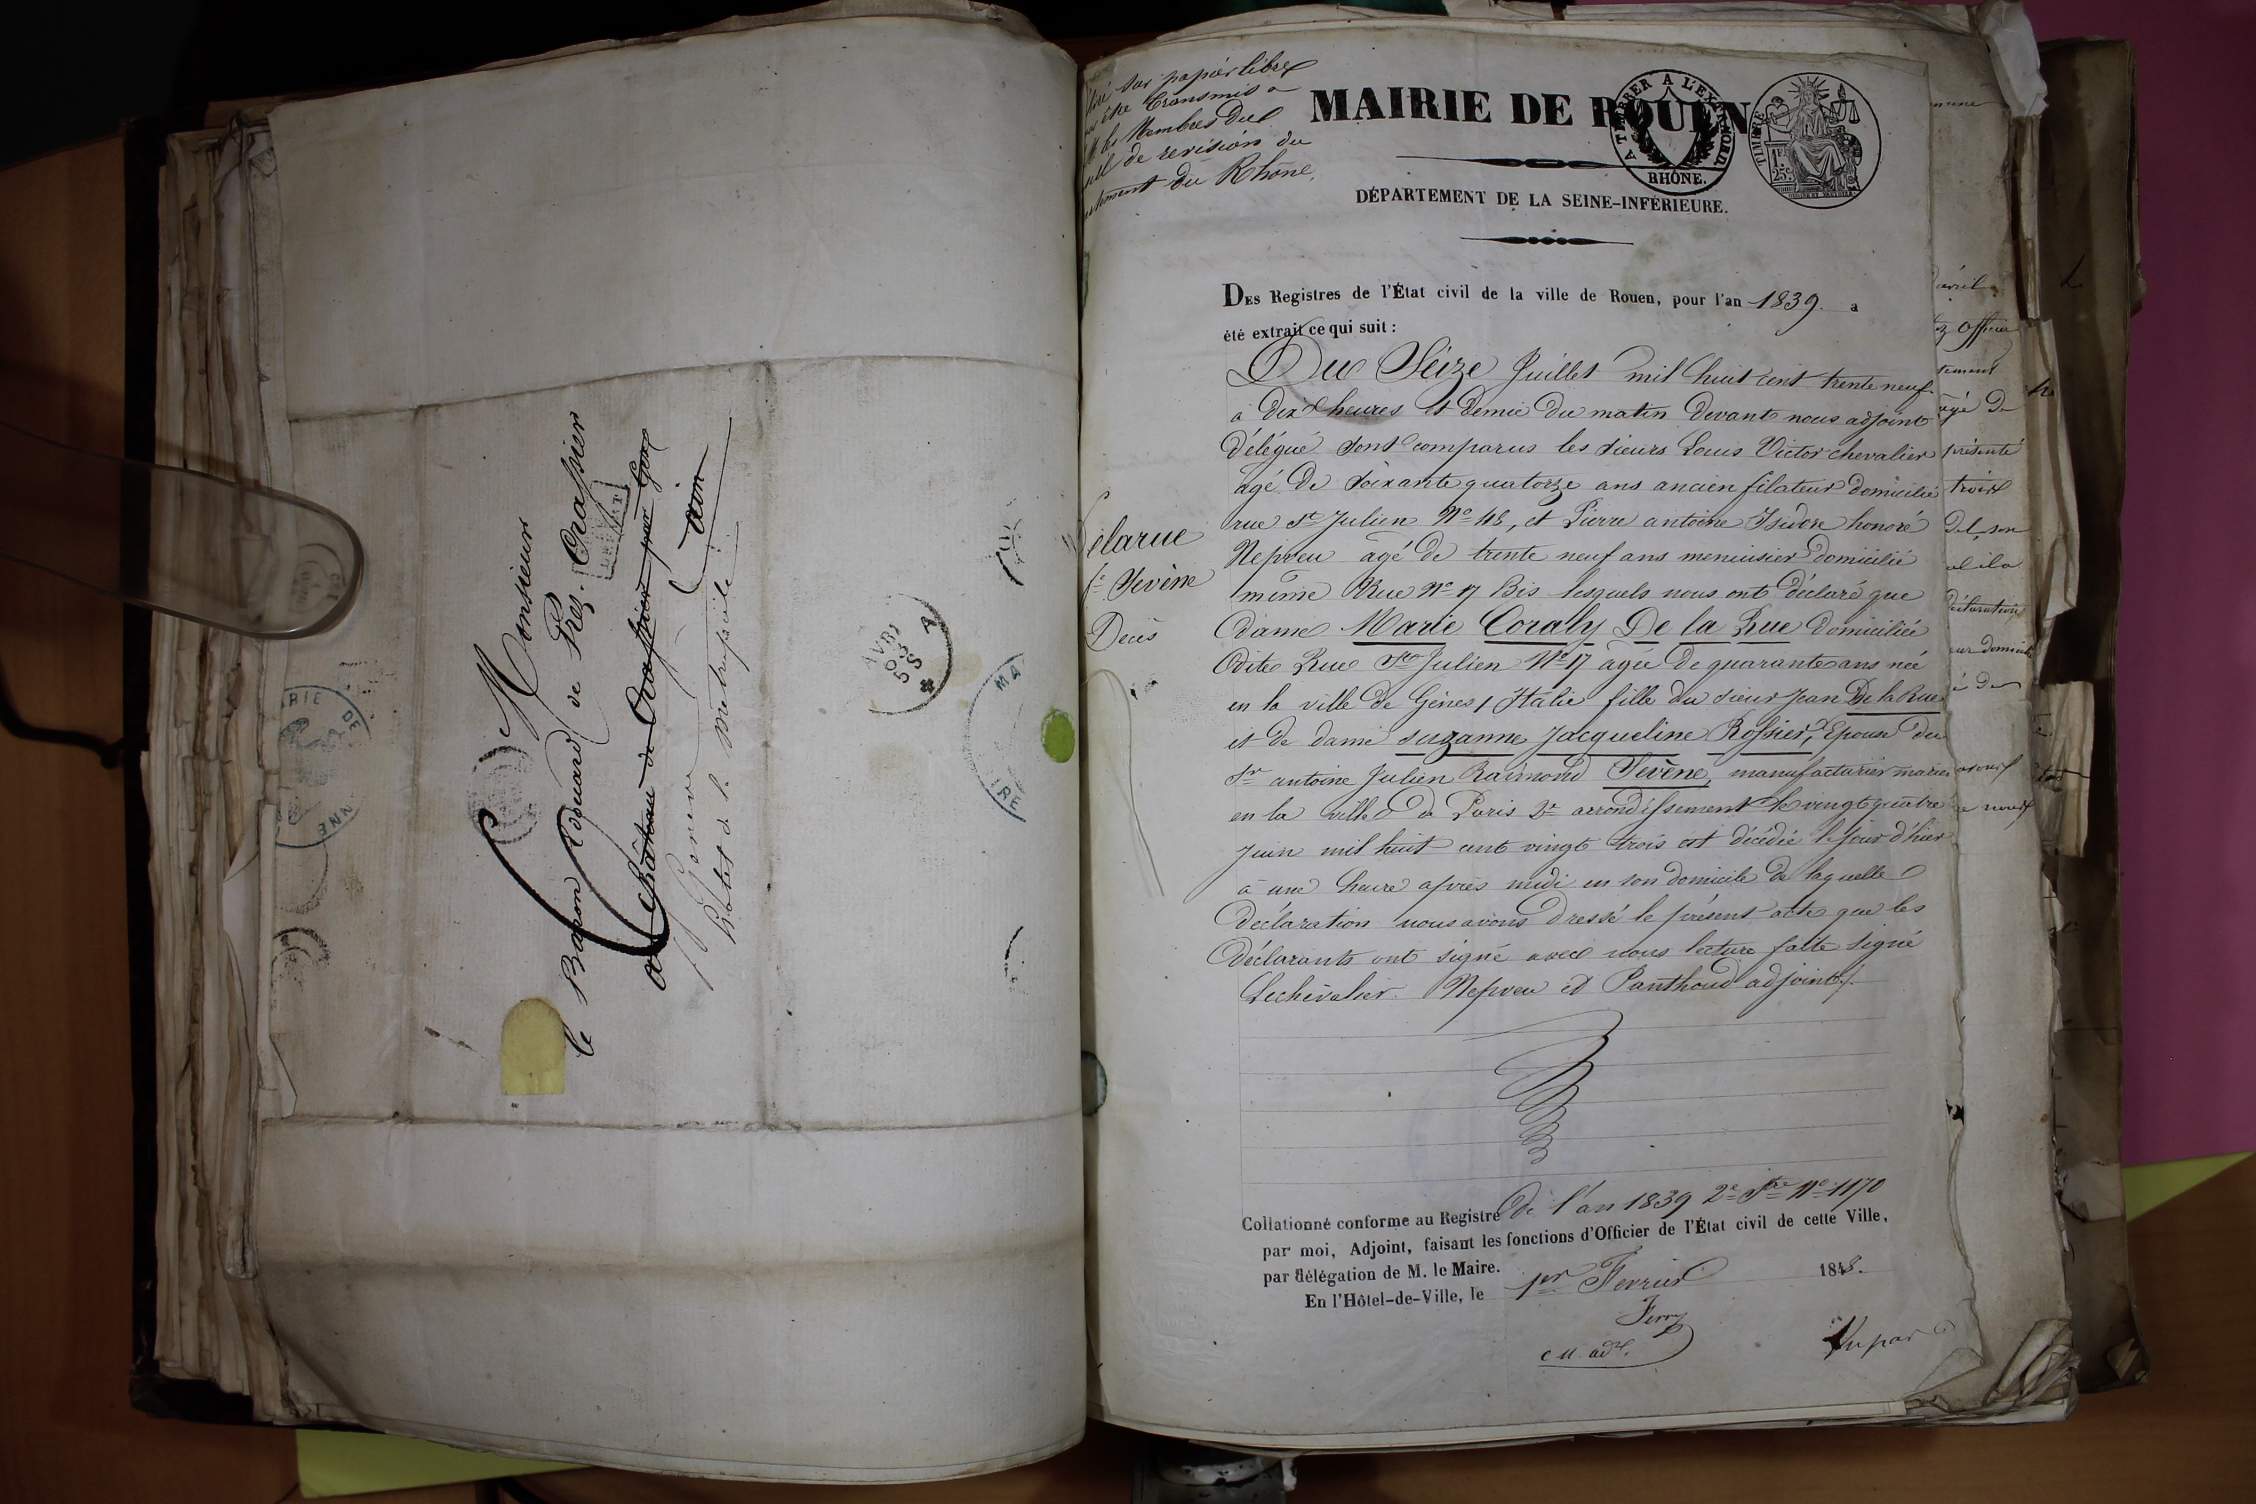 Monsieur
le Baron Edouard de Prez. Crassier
au Château de Crassier par Gex
ain
Genève
hôtel de la Métropole
sur papier libre
être transmis a
les Membres du
de revision du
du Rhône.
MAIRIE DE ROUEN
A TIMBRER A L'EXTRAORD.
RHÔNE.
TIMBRE
1F.
25c.
DÉPARTEMENT DE LA SEINE-INFÉRIEURE.
DES Registres de l'État civil de la ville de Rouen, pour l'an 1839. a
été extrait ce qui suit :
Du Seize Juillet mil huit cent trente neuf
à dix heures et demie du matin Devant nous adjoint
Délégué sont comparus les sieurs Louis Victor chevalier
agé De soixante quatorze ans ancien filateur domicilié
rue St Julien No 48, et Pierre antoine Isidore honoré
Nepveu agé de trente neuf ans menuisier domicilié
même Rue No 17 Bis lesquels nous ont déclaré que
Dame Marie Coraly De la Rue domiciliée
dite Rue St Julien No 17 agée De quarante ans née
en la ville de Gènes, Italie fille du sieur Jean De la Rue
et de dame suzanne Jacqueline Rossier, Epouse du
Sr antoine Julien Raimond Sevène, manufacturier mariés
en la ville de Paris 2e arrondissement le vingt quatre
Juin mil huit cent vingt trois est décédée le jour d'hier
à une heure après midi en son domicile de laquelle
Déclaration nous avons dressé le présent acte que les
Déclarants ont signé avec nous lecture faite signé
Lechevalier. Nepveu et Panthoud adjoint.
Delarue
fe Sevène
Décès
Collationné conforme au Registre de l'an 1839 2e No 1170
par moi, Adjoint, faisant les fonctions d'Officier de l'État civil de cette Ville,
par délégation de M. le Maire.
En l'Hôtel-de-Ville, le 1er Fevrier 1848.
Vu par